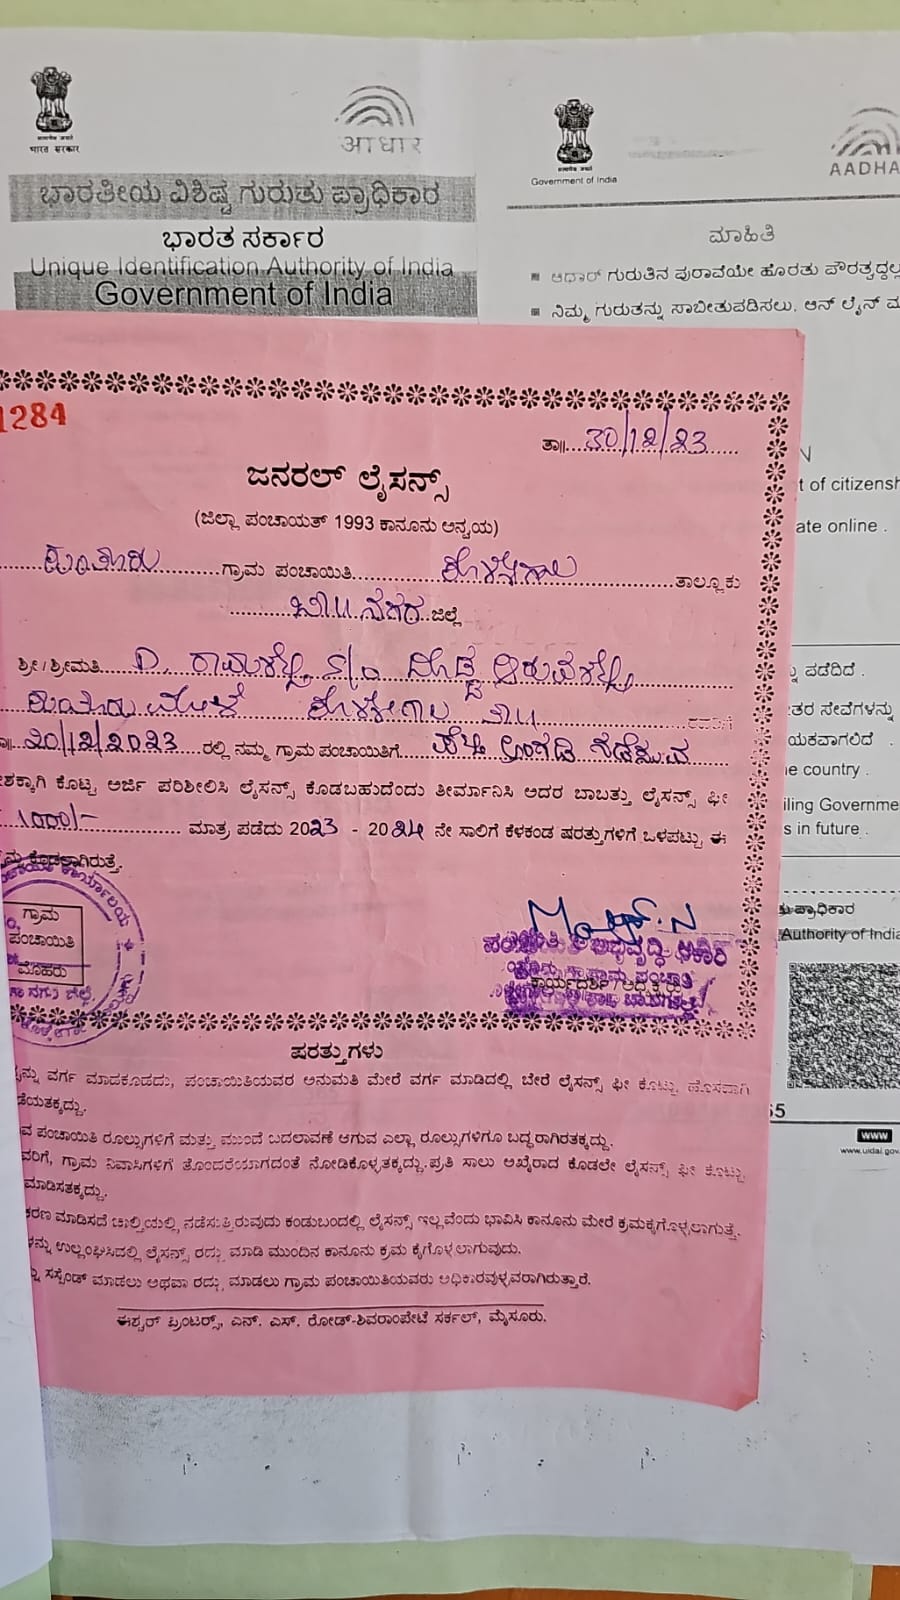 भारत सरकार
आधार
ಭಾರತೀಯ ವಿಶಿಷ್ಟ ಗುರುತು ಪ್ರಾಧಿಕಾರ
ಭಾರತ ಸರ್ಕಾರ
Unique Identification Authority of India
Government of India
Government of India
AADHA
ಮಾಹಿತಿ
ಆಧಾರ್ ಗುರುತಿನ ಪುರಾವೆಯೇ ಹೊರತು ಪೌರತ್ವದ್ದಲ್ಲ
ನಿಮ್ಮ ಗುರುತನ್ನು ಸಾಬೀತುಪಡಿಸಲು, ಆನ್ ಲೈನ್
1284
ತಾ॥....30/12/23......
ಜನರಲ್ ಲೈಸನ್ಸ್
(ಜಿಲ್ಲಾ ಪಂಚಾಯತ್ 1993 ಕಾನೂನು ಅನ್ವಯ)
ಕುಂತೂರು ಗ್ರಾಮ ಪಂಚಾಯಿತಿ ಕೊಳ್ಳೇಗಾಲ ತಾಲ್ಲೂಕು
ಚಾ॥ನಗರ ಜಿಲ್ಲೆ
ಶ್ರೀ/ಶ್ರೀಮತಿ D. S/o
ಕುಂತೂರು ಮೋಳೆ ಕೊಳ್ಳೇಗಾಲ
20/12/2023 ರಲ್ಲಿ ನಮ್ಮ ಗ್ರಾಮ ಪಂಚಾಯಿತಿಗೆ ಅಂಗಡಿ ನಡೆಸುವ
ಕ್ಕಾಗಿ ಕೊಟ್ಟ ಅರ್ಜಿ ಪರಿಶೀಲಿಸಿ ಲೈಸನ್ಸ್ ಕೊಡಬಹುದೆಂದು ತೀರ್ಮಾನಿಸಿ ಅದರ ಬಾಬತ್ತು ಲೈಸನ್ಸ್ ಫೀ
1000/- ಮಾತ್ರ ಪಡೆದು 2023 - 2024 ನೇ ಸಾಲಿಗೆ ಕೆಳಕಂಡ ಷರತ್ತುಗಳಿಗೆ ಒಳಪಟ್ಟು ಈ
ಕೊಡಲಾಗಿರುತ್ತೆ.
ಗ್ರಾಮ
ಪಂಚಾಯಿತಿ
ಮೊಹರು
ಷರತ್ತುಗಳು
ವರ್ಗ ಮಾಡಕೂಡದು, ಪಂಚಾಯಿತಿಯವರ ಅನುಮತಿ ಮೇರೆ ವರ್ಗ ಮಾಡಿದಲ್ಲಿ ಬೇರೆ ಲೈಸನ್ಸ್ ಫೀ ಕೊಟ್ಟು ಹೊಸದಾಗಿ
ಡೆಯತಕ್ಕದ್ದು.
ಪಂಚಾಯಿತಿ ರೂಲ್ಸುಗಳಿಗೆ ಮತ್ತು ಮುಂದೆ ಬದಲಾವಣೆ ಆಗುವ ಎಲ್ಲಾ ರೂಲ್ಸುಗಳಿಗೂ ಬದ್ಧರಾಗಿರತಕ್ಕದ್ದು.
ವರಿಗೆ, ಗ್ರಾಮ ನಿವಾಸಿಗಳಿಗೆ ತೊಂದರೆಯಾಗದಂತೆ ನೋಡಿಕೊಳ್ಳತಕ್ಕದ್ದು. ಪ್ರತಿ ಸಾಲು ಅಖೈರಾದ ಕೂಡಲೇ ಲೈಸನ್ಸ್ ಫೀ ಕೊಟ್ಟು
ಮಾಡಿಸತಕ್ಕದ್ದು.
ಕರಣ ಮಾಡಿಸದೆ ಚಾಲ್ತಿಯಲ್ಲಿ ನಡೆಸುತ್ತಿರುವುದು ಕಂಡುಬಂದಲ್ಲಿ ಲೈಸನ್ಸ್ ಇಲ್ಲವೆಂದು ಭಾವಿಸಿ ಕಾನೂನು ಮೇರೆ ಕ್ರಮಕೈಗೊಳ್ಳಲಾಗುತ್ತೆ.
ಉಲ್ಲಂಘಿಸಿದಲ್ಲಿ ಲೈಸನ್ಸ್ ರದ್ದು ಮಾಡಿ ಮುಂದಿನ ಕಾನೂನು ಕ್ರಮ ಕೈಗೊಳ್ಳಲಾಗುವುದು.
ಸಸ್ಪೆಂಡ್ ಮಾಡಲು ಅಥವಾ ರದ್ದು ಮಾಡಲು ಗ್ರಾಮ ಪಂಚಾಯಿತಿಯವರು ಅಧಿಕಾರವುಳ್ಳವರಾಗಿರುತ್ತಾರೆ.
ಈಶ್ವರ್ ಪ್ರಿಂಟರ್ಸ್, ಎನ್. ಎಸ್. ರೋಡ್-ಶಿವರಾಂಪೇಟೆ ಸರ್ಕಲ್, ಮೈಸೂರು.
t of citizensh
ate online .
ಪಡೆದಿದೆ
ತರ ಸೇವೆಗಳನ್ನು
ಯಕವಾಗಲಿದೆ .
e country .
iling Governme
s in future .
ಪ್ರಾಧಿಕಾರ
Authority of India
65
www
www.uidai.gov